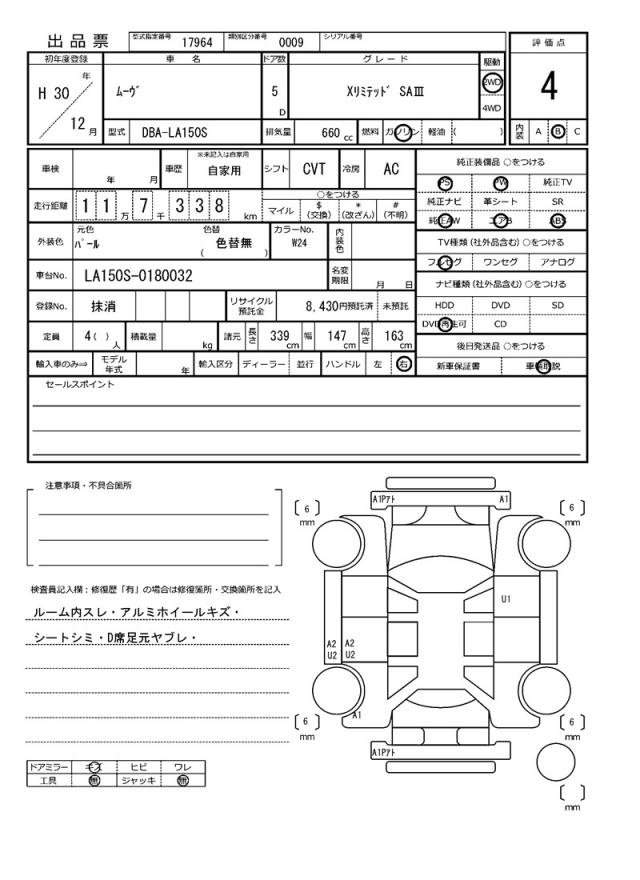 出品票 型式指定番号 17964 類別区分番号 0009 シリアル番号
初年度登録 車名 ドア数 グレード 駆動 評価点
H 30 年 12 月 ﾑｰｳﾞ 5 D Xリミテッド SAⅢ 2WD 4WD 4
型式 DBA-LA150S 排気量 660 cc 燃料 ガソリン 軽油 ( ) 内装 A B C
車検 年 月 車歴 ※未記入は自家用 自家用 シフト CVT 冷房 AC 純正装備品 ○をつける
PS PW 純正TV
走行距離 11万 7千 338 km ○をつける マイル $(交換) *(改ざん) #(不明) 純正ナビ 革シート SR
純正AW エアB ABS
外装色 元色 パール 色替 色替無 ( ) カラーNo. W24 内装色 TV種類(社外品含む)○をつける
フルセグ ワンセグ アナログ
車台No. LA150S-0180032 名変期限 月 日 ナビ種類(社外品含む)○をつける
登録No. 抹消 リサイクル預託金 8,430円預託済 未預託 HDD DVD SD
DVD再生可 CD
定員 4( )人 積載量 kg 諸元 長さ 339 cm 幅 147 cm 高さ 163 cm 後日発送品 ○をつける
輸入車のみ⇒ モデル年式 年 輸入区分 ディーラー 並行 ハンドル 左 右 新車保証書 車輌取説
セールスポイント
注意事項・不具合箇所
A1Pｱﾄ A1
[6] mm [6] mm
検査員記入欄:修復歴「有」の場合は修復箇所・交換箇所を記入
ルーム内スレ・アルミホイールキズ・
U1
シートシミ・D席足元ヤブレ・
A2 U2 A2 U2
A1
[6] mm [6] mm
A1Pｱﾄ
ドアミラー キズ ヒビ ワレ
工具 無 ジャッキ 無
[ ] mm